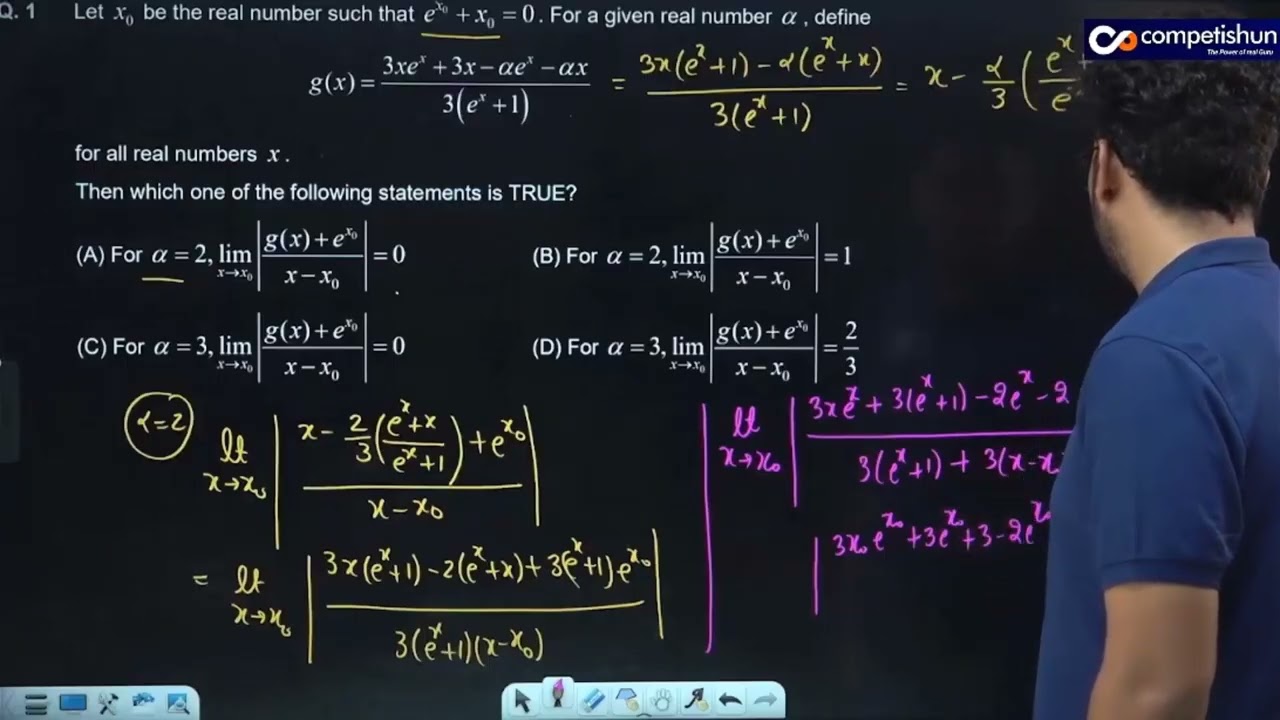 Q. 1 Let x₀ be the real number such that e^{x₀} + x₀ = 0. For a given real number α, define
competishun
The Power of real Guru
g(x) = (3xe^x + 3x − αe^x − αx) / (3(e^x + 1)) = (3x(e^x+1) − α(e^x+x)) / (3(e^x+1)) = x − α/3 (e^x / e
for all real numbers x.
Then which one of the following statements is TRUE?
(A) For α = 2, lim_{x→x₀} |(g(x) + e^{x₀}) / (x − x₀)| = 0
(B) For α = 2, lim_{x→x₀} |(g(x) + e^{x₀}) / (x − x₀)| = 1
(C) For α = 3, lim_{x→x₀} |(g(x) + e^{x₀}) / (x − x₀)| = 0
(D) For α = 3, lim_{x→x₀} |(g(x) + e^{x₀}) / (x − x₀)| = 2/3
α=2 lt_{x→x₀} |(x − 2/3 ((e^x+x)/(e^x+1)) + e^{x₀}) / (x − x₀)|
= lt_{x→x₀} |(3x(e^x+1) − 2(e^x+x) + 3(e^x+1)e^{x₀}) / (3(e^x+1)(x−x₀))|
lt_{x→x₀} |(3xe^x + 3(e^x+1) − 2e^x − 2) / (3(e^x+1) + 3(x−x
|3x₀e^{x₀} + 3e^{x₀} + 3 − 2e^{x₀}